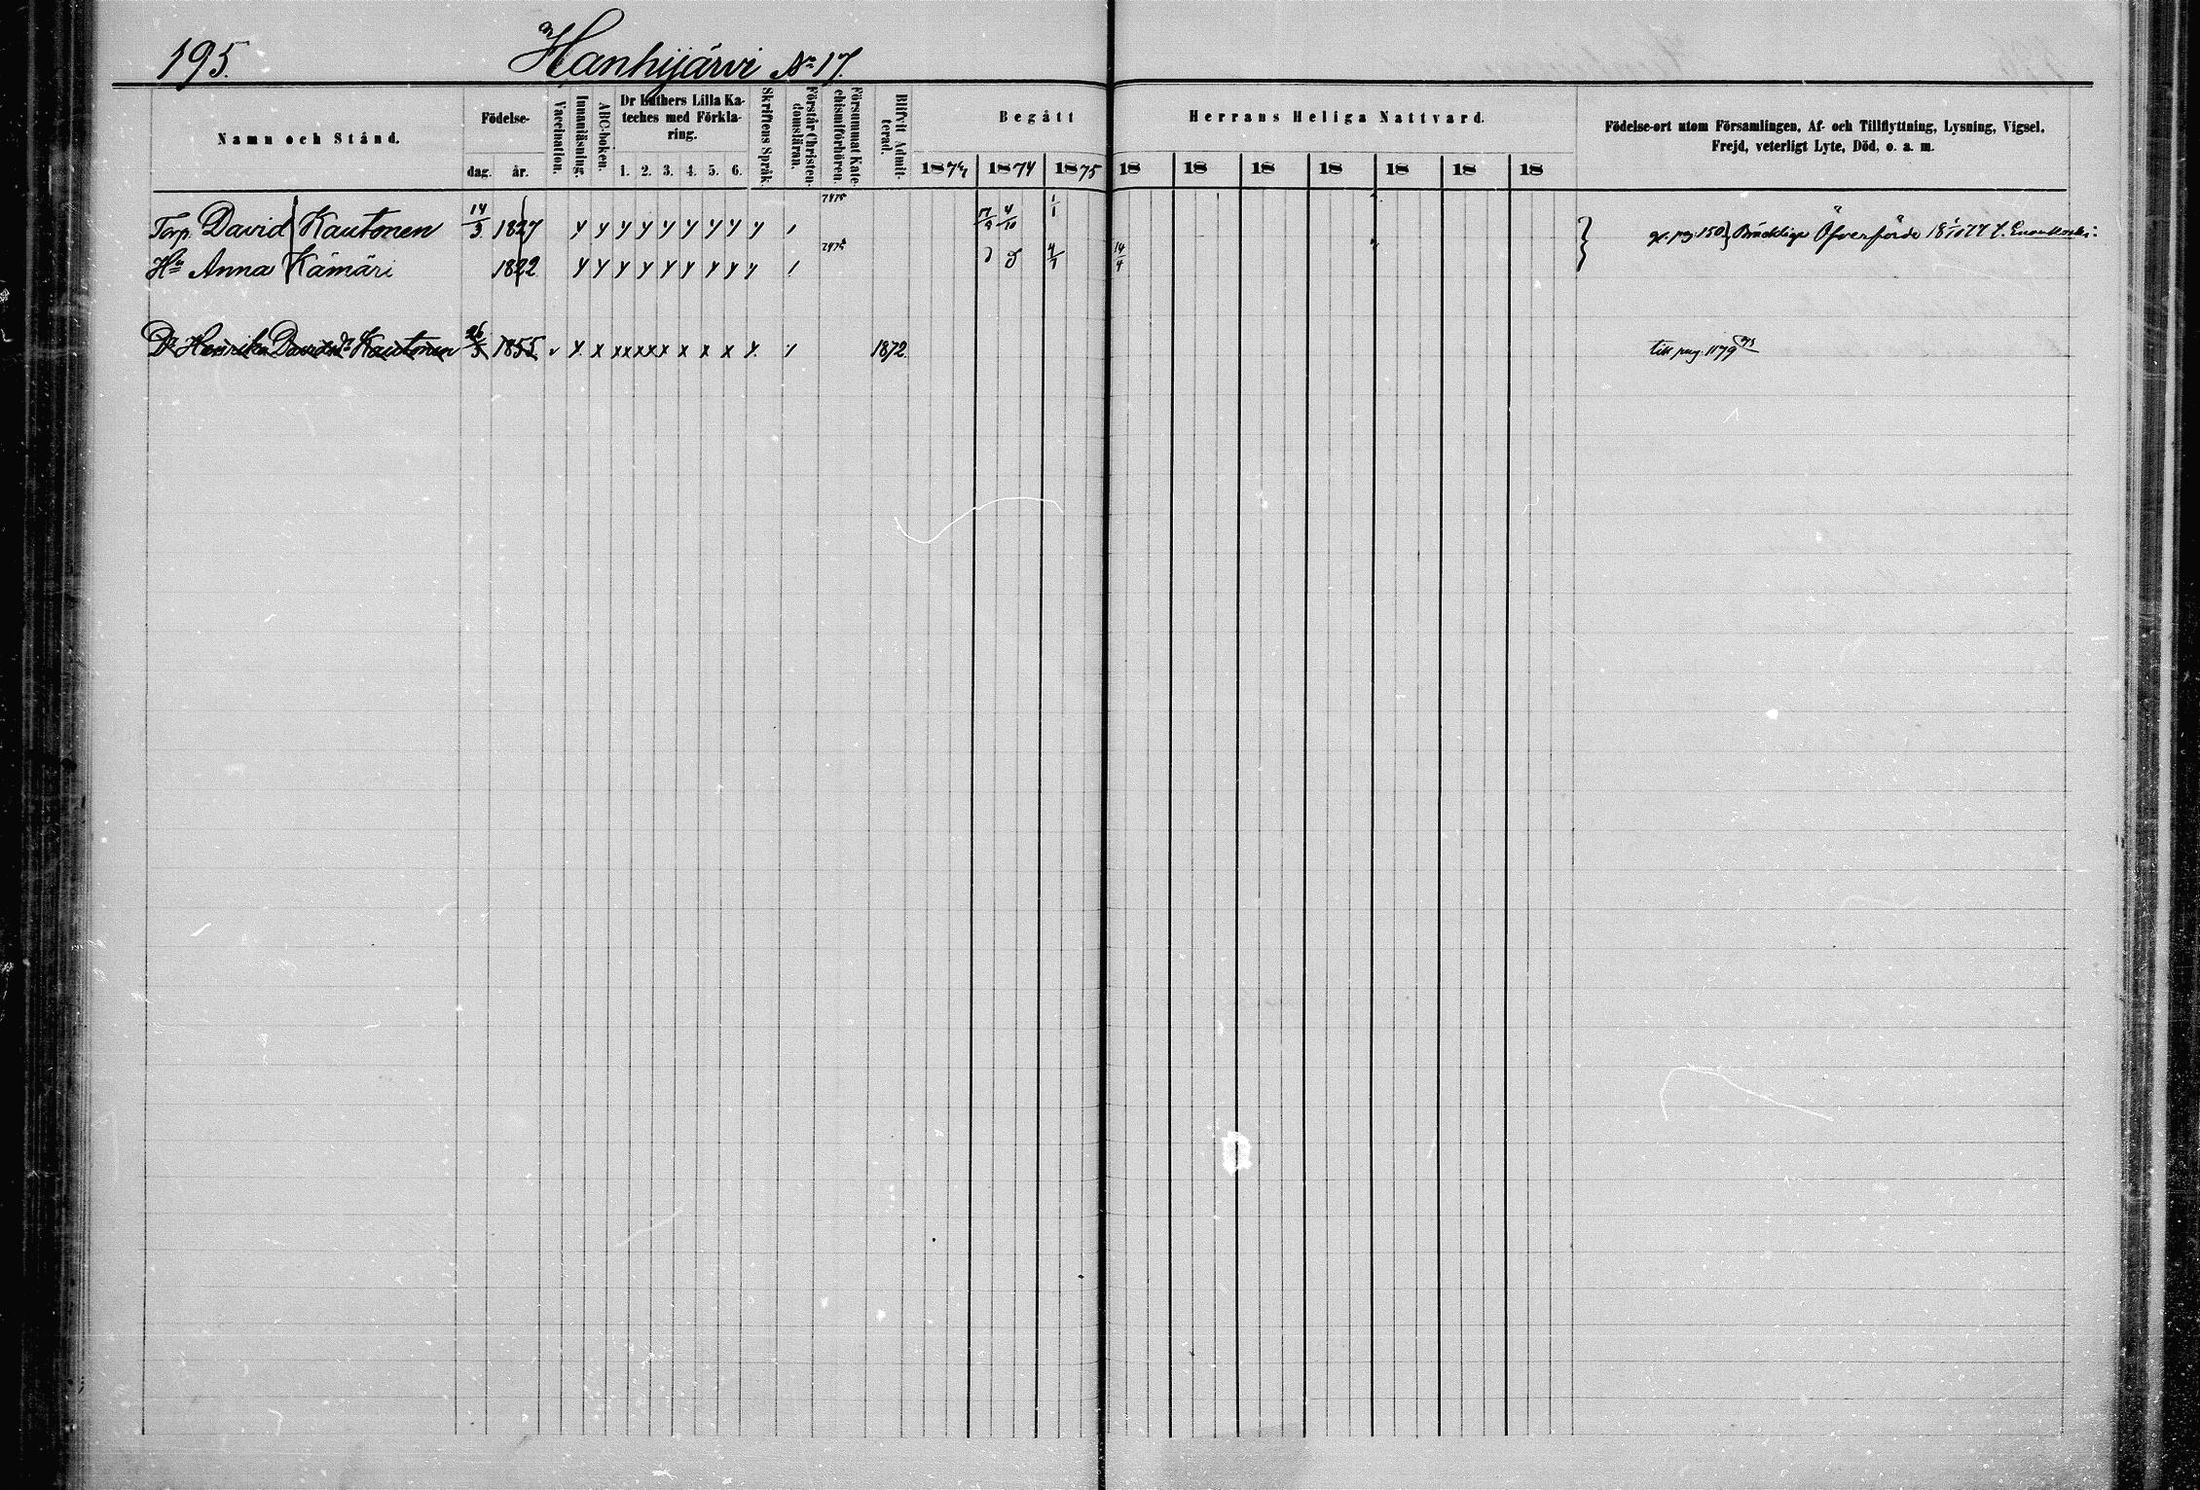 195. Hanhijärvi No 17.
Namn och Stånd. Födelse- dag. år. Vaccination. Innanläsning. ABC-boken. Dr Luthers Lilla Kateches med Förklaring. 1. 2. 3. 4. 5. 6. Skriftens Språk. Förstår Christendomsläran. Försummat Katechismiförhören. Blifvit Admitterad. Begått Herrans Heliga Nattvard. 1874 1875 18 18 18 18 18 18 18 Födelse-ort utom Församlingen, Af- och Tillflyttning, Lysning, Vigsel, Frejd, veterligt Lyte, Död, o. a. m.
Torp. David Kautonen 14/3 1827 y y y y y y y y y / 4/10 1/1 pag. 150 Bräcklige Öfverförde
Hu Anna Kämäri 1822 y y y y y y y y y / 14/4
Dr Henrika Davidsdr Kautonen 26/3 1855 v x x xx xxx x x x x / 1872. till pag. 1179